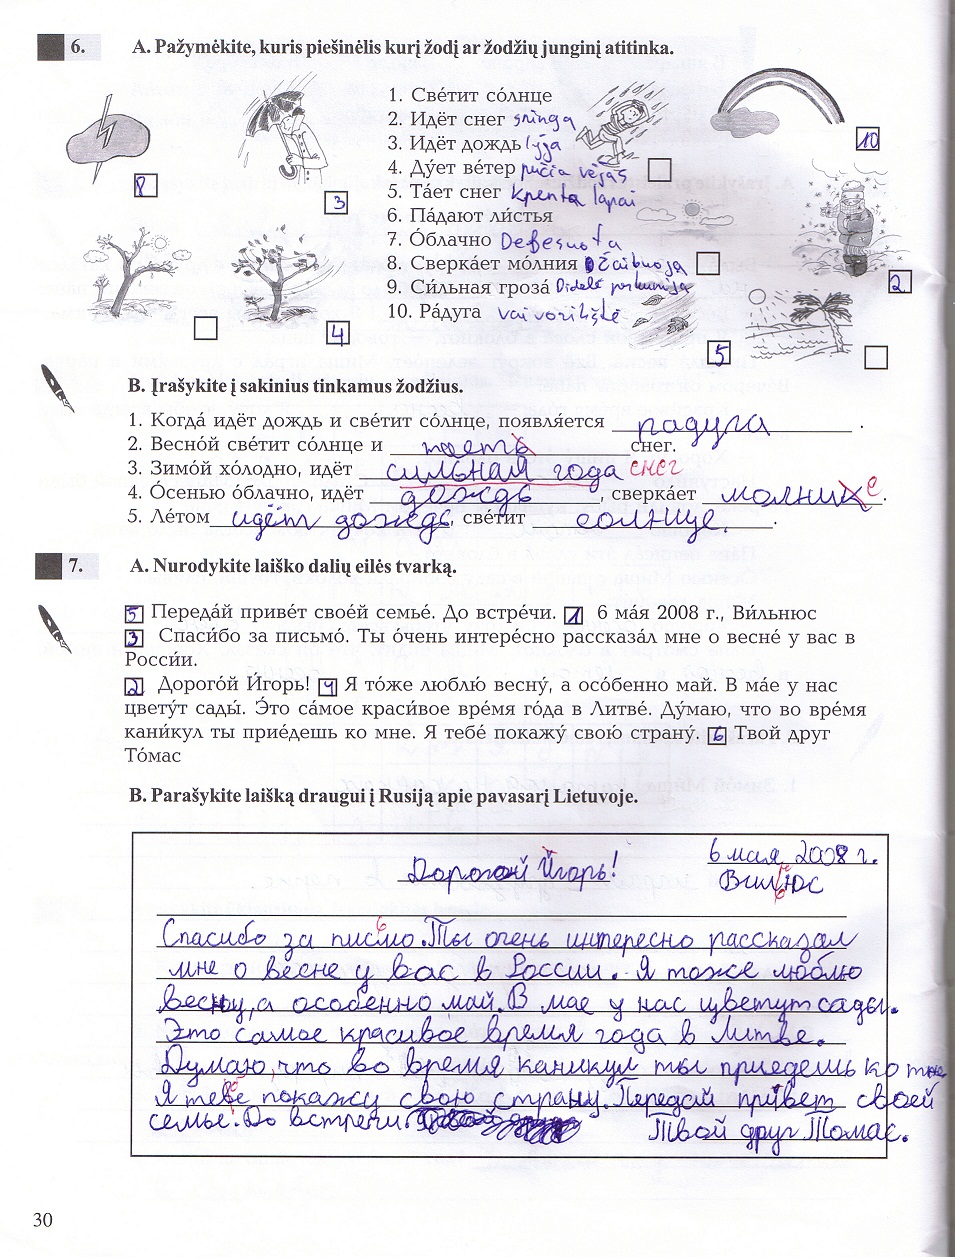 6. A. Pažymėkite, kuris piešinėlis kurį žodį ar žodžių junginį atitinka.
1. Све́тит со́лнце
2. Идёт снег sninga
3. Идёт дождь lyja
4. Ду́ет ве́тер pučia vėjas
5. Та́ет снег krenta lapai
6. Па́дают ли́стья
7. О́блачно Debesuota
8. Сверка́ет мо́лния žaibuoja
9. Си́льная гроза́ Didelė perkunija
10. Ра́дуга vaivorikštė
8
3
10
4
2
5
B. Įrašykite į sakinius tinkamus žodžius.
1. Когда́ идёт дождь и све́тит со́лнце, появля́ется радуга .
2. Весно́й све́тит со́лнце и таеть снег.
3. Зимо́й хо́лодно, идёт сильная года снег
4. О́сенью о́блачно, идёт дождь , сверка́ет молния е.
5. Ле́том идёт дождь, све́тит солнце.
7. A. Nurodykite laiško dalių eilės tvarką.
5 Переда́й приве́т свое́й семье́. До встре́чи. 1 6 ма́я 2008 г., Ви́льнюс
3 Спаси́бо за письмо́. Ты о́чень интере́сно рассказа́л мне о весне́ у вас в
Росси́и.
2 Дорого́й И́горь! 4 Я то́же люблю́ весну́, а осо́бенно май. В ма́е у нас
цвету́т сады́. Э́то са́мое краси́вое вре́мя го́да в Литве́. Ду́маю, что во вре́мя
кани́кул ты прие́дешь ко мне. Я тебе́ покажу́ свою́ страну́. 6 Твой друг
То́мас
B. Parašykite laišką draugui į Rusiją apie pavasarį Lietuvoje.
6 мая 2008 г.
Дорогой Йгорь!
Вилюс
Спасибо записмо. Ты очень интересно рассказал
мне о весне у вас в России. Я тоже люблю
весну, а особенно май. В мае у нас цветут сады.
Это самое красивое время года в Литве.
Думаю, что во время каникул ты приедешь ко мне
Я тебе покажу свою страну. Передай привет своей
семье. До встречи.
Твой друг Томас.
30